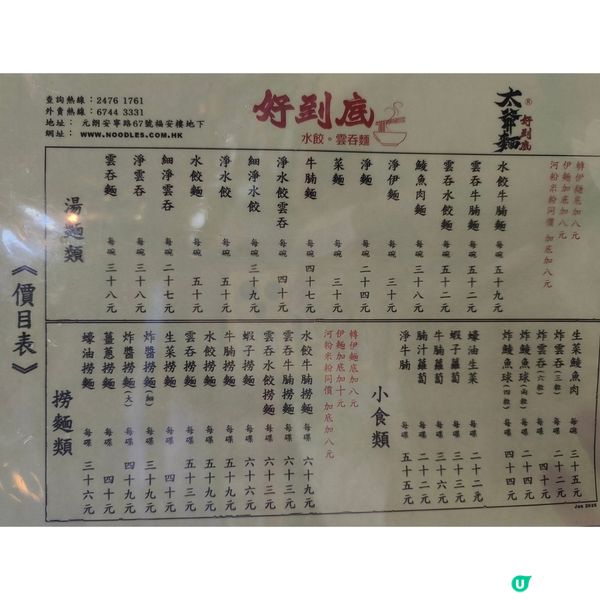 查詢熱線：2476 1761
外賣熱線：6744 3331
地址： 元朗安寧路67號福安樓地下
網址： WWW.NOODLES.COM.HK
好到底
水餃。雲吞麵
太爺麵®
好到底
《價目表》
湯麵類
雲吞麵 每碗 三十八元
淨雲吞 每碗 三十八元
細淨雲吞 每碗 二十七元
水餃麵 每碗 五十元
淨水餃 每碗 五十元
細淨水餃 每碗 三十九元
淨水餃雲吞 每碗 四十元
牛腩麵 每碗 四十七元
菜麵 每碗 三十元
淨麵 每碗 二十四元
淨伊麵 每碗 三十元
鯪魚肉麵 每碗 三十八元
雲吞水餃麵 每碗 五十二元
雲吞牛腩麵 每碗 五十二元
水餃牛腩麵 每碗 五十九元
轉伊麵底加八元
伊麵加底加八元
河粉米粉同價 加底加八元
撈麵類
蠔油撈麵 每碟 三十六元
薑蔥撈麵 每碟 四十元
炸醬撈麵(大) 每碟 四十九元
炸醬撈麵(細) 每碟 三十九元
生菜撈麵 每碟 四十元
雲吞撈麵 每碟 五十九元
水餃撈麵 每碟 五十九元
牛腩撈麵 每碟 五十九元
蝦子撈麵 每碟 六十六元
雲吞水餃撈麵 每碟 六十三元
雲吞牛腩撈麵 每碟 六十三元
水餃牛腩撈麵 每碟 六十九元
轉伊麵底加八元
伊麵加底加十元
河粉米粉同價 加底加八元
小食類
淨牛腩 每碟 五十五元
腩汁蘿蔔 每碟 二十二元
牛腩蘿蔔 每碟 三十六元
蝦子蘿蔔 每碟 三十三元
蠔油生菜 每碟 二十二元
炸鯪魚球(四粒) 每碟 四十四元
炸鯪魚球(兩粒) 每碟 二十四元
炸雲吞(六粒) 每碟 四十元
炸雲吞(三粒) 每碟 二十二元
生菜鯪魚肉 每碗 三十五元
Jan 2025